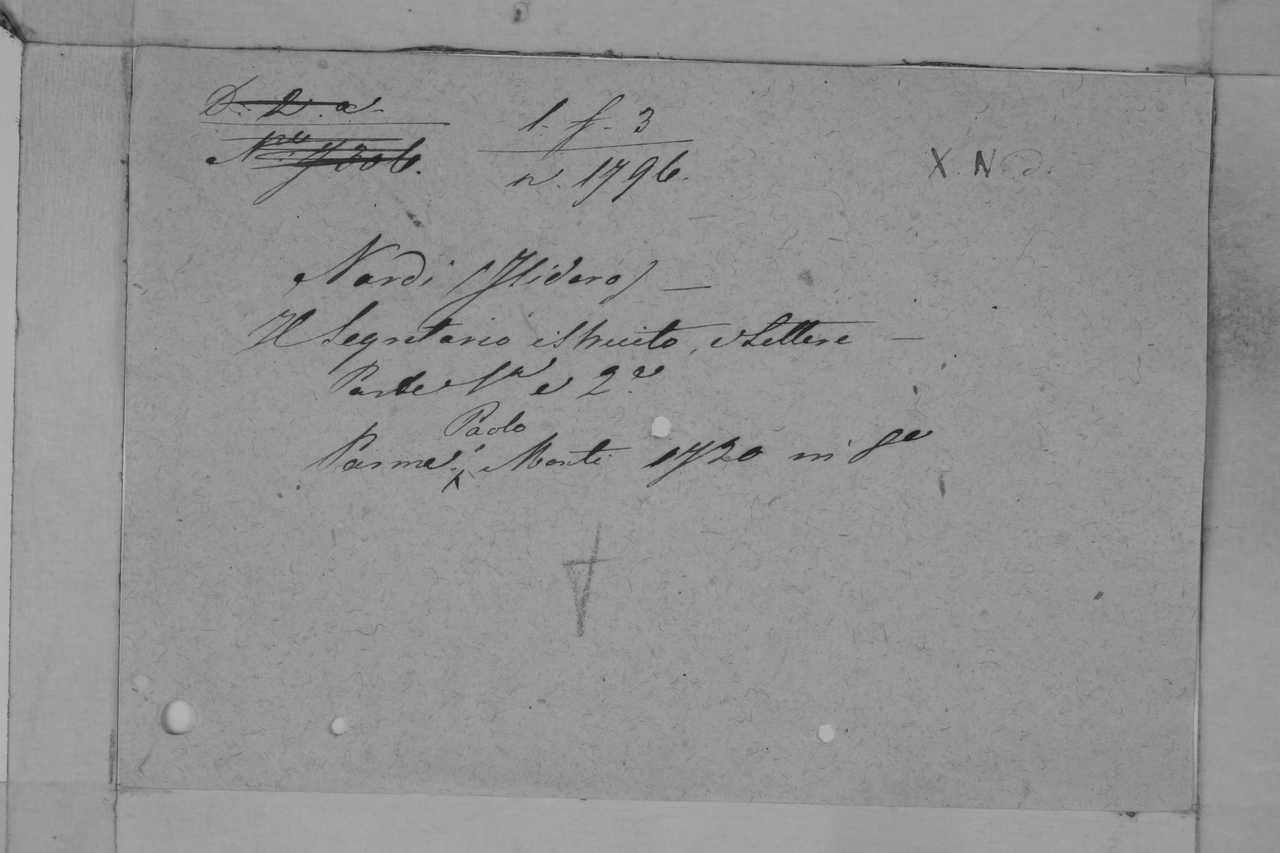 D. 2. a.
N.ro 7306.
1. f. 3
n. 1796.
X. N. d.
Nardi (Isidoro) —
Il Segretario istruito, e Lettere —
Parte 1a e 2a
Paolo
Parma, Monti 1720 in 8o